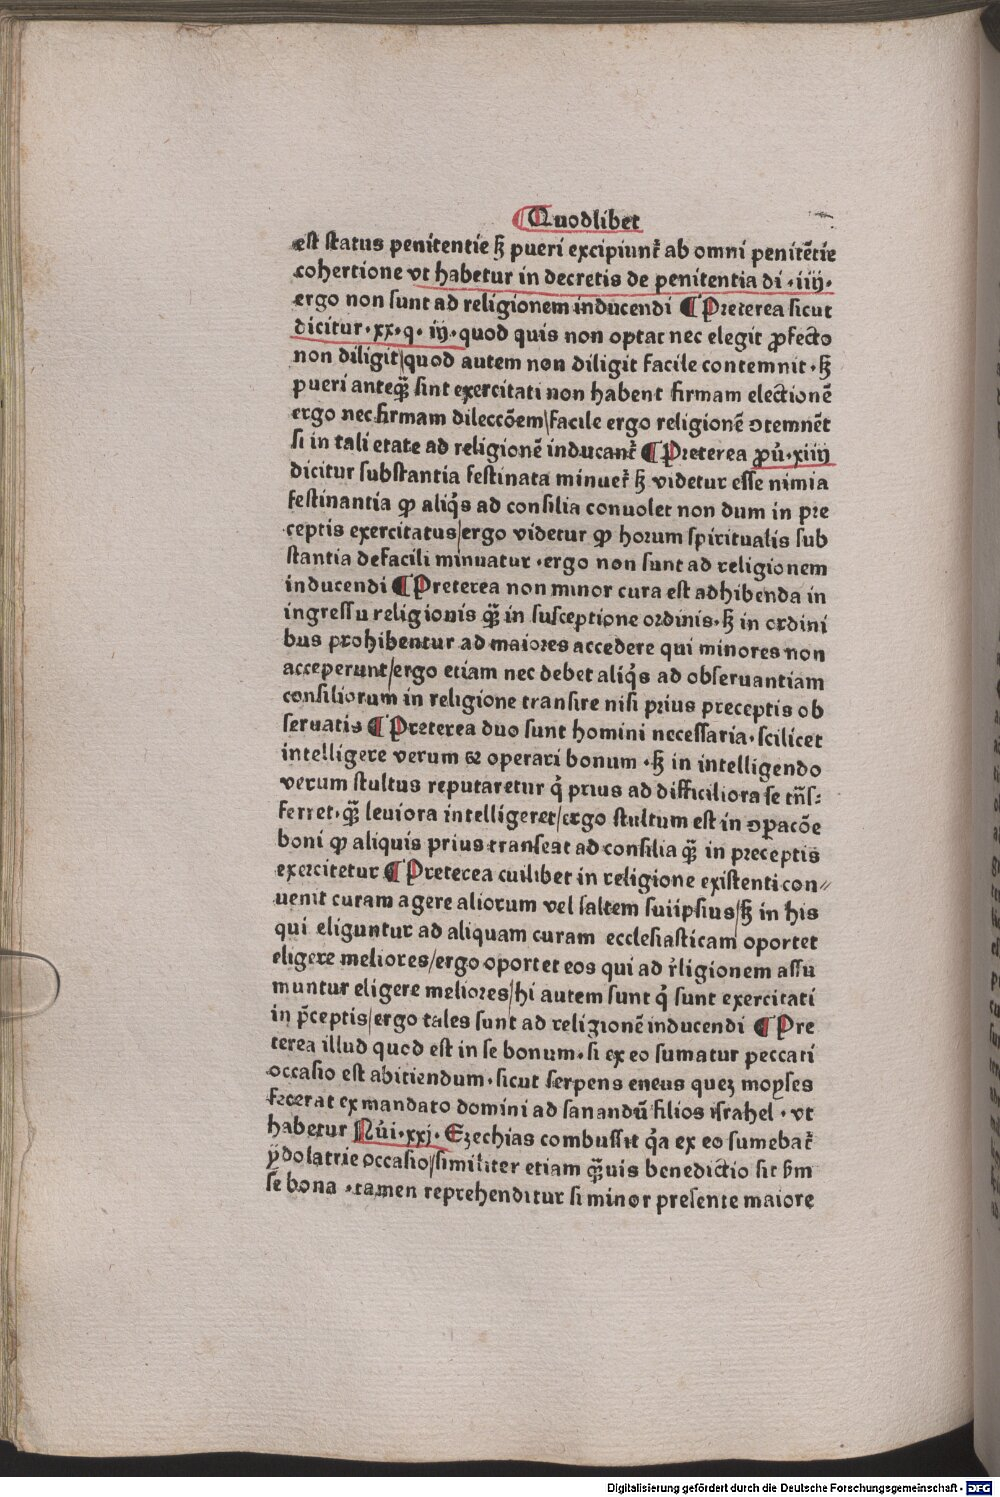 ¶Quodlibet
est status penitentie ꝫ pueri excipiunt᷑ ab omni penitētie
cohertione vt habetur in decretis de penitentia di ·iiij·
ergo non sunt ad religionem inducendi ¶Preterea sicut
dicitur·xx·q· iij·quod quis non optat nec elegit ꝓfecto
non diligit/quod autem non diligit facile contemnit·ꝫ
pueri anteq̄ꝫ sint exercitati non habent firmam electionē
ergo nec firmam dileccōem/facile ergo religionē ꝯtemnēt
si in tali etate ad religionē inducant᷑ ¶Preterea ꝓu̓·xiiij
dicitur substantia festinata minuet᷑ ꝫ videtur esse nimia
festinantia ꝙ aliq̓s ad consilia conuolet non dum in pre
ceptis exercitatus/ergo videtur ꝙ horum spiritualis sub
stantia defacili minuatur ·ergo non sunt ad religionem
inducendi ¶Preterea non minor cura est adhibenda in
ingressu religionis q̄ꝫ in susceptione ordinis·ꝫ in ordini
bus prohibentur ad maiores accedere qui minores non
acceperunt/ergo etiam nec debet aliq̓s ad obseruantiam
consiliorum in religione transire nisi prius preceptis ob
seruatis ¶Preterea duo sunt homini necessaria·scilicet
intelligere verum ⁊ operari bonum ·ꝫ in intelligendo
verum stultus reputaretur q̓ prius ad difficiliora se tn̄s⸗
ferret·q̄ꝫ leuiora intelligeret/ergo stultum est in ꝯꝑacōe
boni ꝙ aliquis prius transeat ad consilia q̄ꝫ in preceptis
exercitetur ¶Preterea cuilibet in religione existenti con⸗
uenit curam agere aliorum vel saltem suiipsius/ꝫ in his
qui eliguntur ad aliquam curam ecclesiasticam oportet
eligere meliores/ergo oportet eos qui ad r̓ligionem assu
muntur eligere meliores/hi autem sunt q̓ sunt exercitati
in p̄ceptis/ergo tales sunt ad religionē inducendi ¶Pre
terea illud quod est in se bonum·si ex eo sumatur peccati
occasio est abitiendum·sicut serpens eneus queꝫ moyses
fecerat ex mandato domini ad sanandū filios israhel · vt
habetur Nu̓i·xxj· Ezechias combussit q̓a ex eo sumebat᷑
ẏdolatrie occasio/similiter etiam q̄ꝫuis benedictio sit ẜm
se bona ·tamen reprehenditur si minor presente maiore
Digitalisierung gefördert durch die Deutsche Forschungsgemeinschaft - DFG